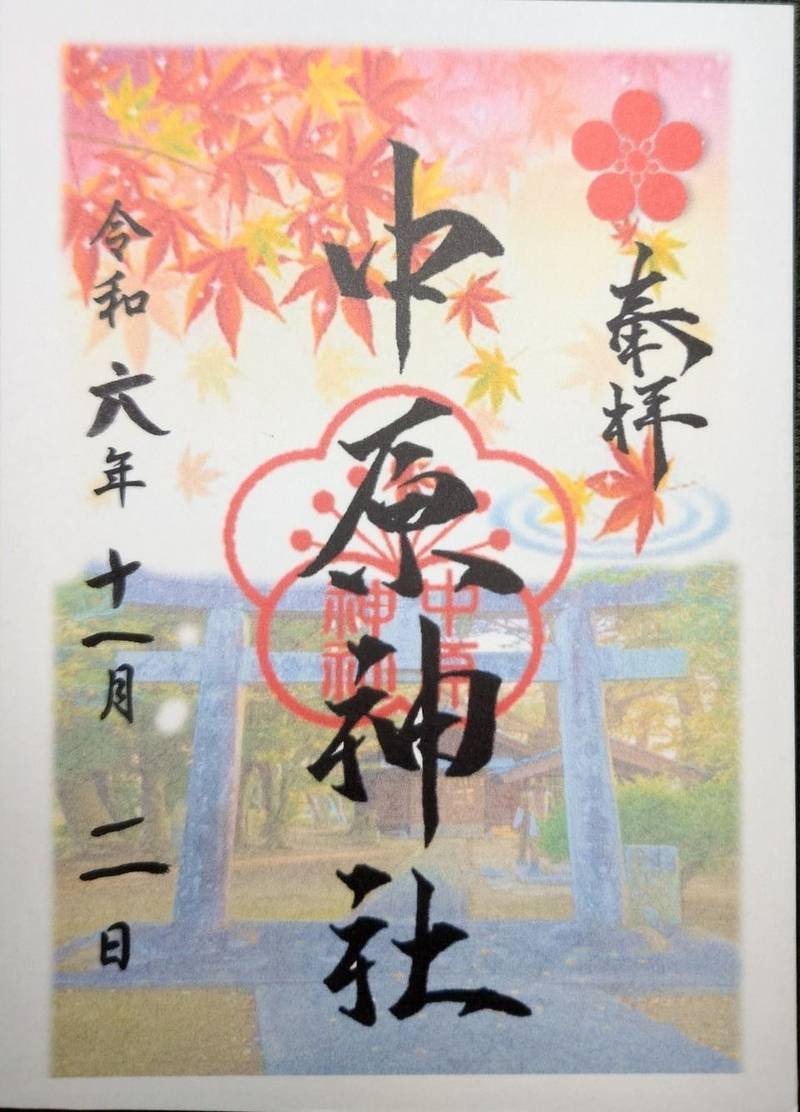 奉拝
中原神社
中原
神社
令和六年十一月二日